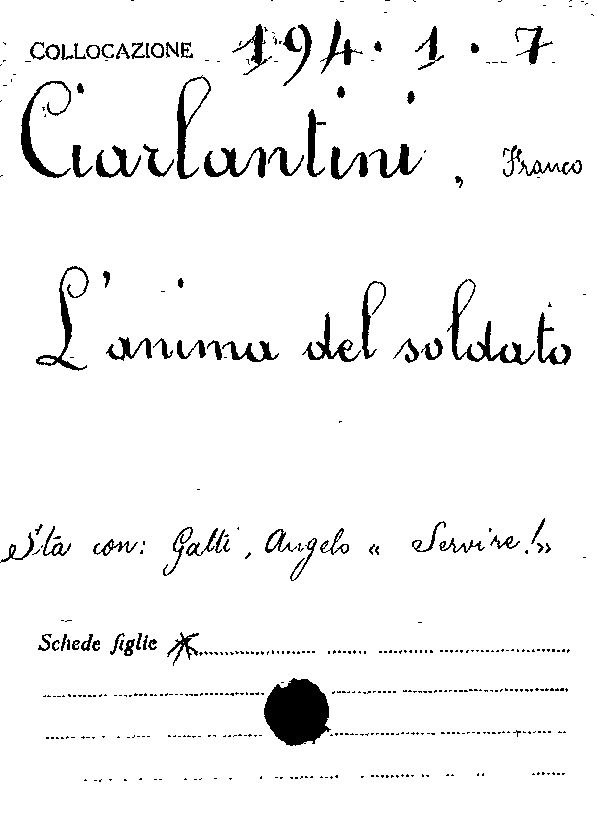 COLLOCAZIONE 194.1.7
Ciarlantini, Franco
L'anima del soldato
Sta con: Gatti, Angelo « Servire!»
Schede figlie